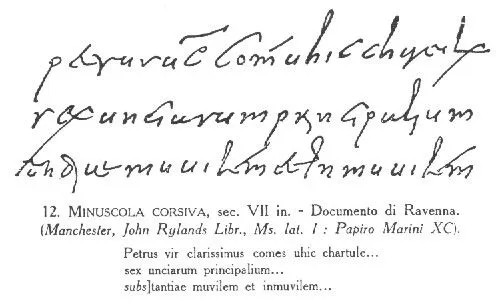 petrus uc̄ com̄ uhic chartule
sex unciarum principalium
tantiae muuilem et inmuuilem
12. MINUSCOLA CORSIVA, sec. VII in. - Documento di Ravenna.
(Manchester, John Rylands Libr., Ms. lat. 1 : Papiro Marini XC).
Petrus vir clarissimus comes uhic chartule...
sex unciarum principalium...
subs]tantiae muvilem et inmuvilem...